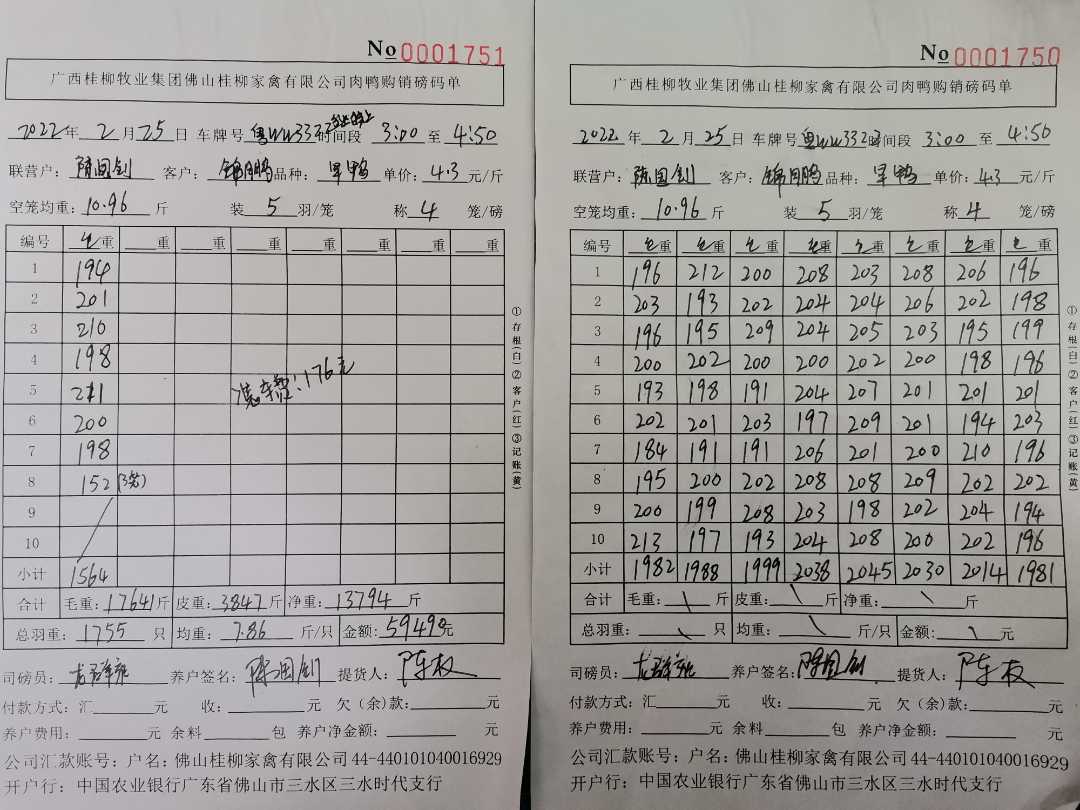 No 0001751
广西桂柳牧业集团佛山桂柳家禽有限公司肉鸭购销磅码单
2022年 2月25日 车牌号 粤WW3323 时间段 3:00 至 4:50
联营户： 陈国钊 客户： 锦鹏 品种： 旱鸭 单价：4.3元/斤
空笼均重：10.96 斤 装 5 羽/笼 称 4 笼/磅
编号 毛重 重 重 重 重 重 重 重
1 194
2 201
3 210
4 198
5 211 洗车费：176元
6 200
7 198
8 152 (3笼)
9
10
小计 1564
合计 毛重：17641斤 皮重：3847斤 净重：13794斤
总羽重：1755 只 均重：7.86 斤/只 金额：59490元
司磅员： 养户签名：陈国钊 提货人：陈权
付款方式：汇 元 收： 元 欠（余）款： 元
养户费用： 元 余料 包 养户净金额： 元
公司汇款账号：户名：佛山桂柳家禽有限公司44-440101040016929
开户行：中国农业银行广东省佛山市三水区三水时代支行
①存根(白)②客户(红)③记账(黄)
No 0001750
广西桂柳牧业集团佛山桂柳家禽有限公司肉鸭购销磅码单
2022年 2月25日 车牌号 粤WW3323 时间段 3:00 至 4:50
联营户： 陈国钊 客户： 锦鹏 品种： 旱鸭 单价：4.3元/斤
空笼均重： 10.96 斤 装 5 羽/笼 称 4 笼/磅
编号 毛重 毛重 毛重 毛重 毛重 毛重 毛重 毛重
1 196 212 200 208 203 208 206 196
2 203 193 202 204 204 206 202 198
3 196 195 209 204 205 203 195 199
4 200 202 200 200 202 200 198 196
5 193 198 191 204 207 201 201 201
6 202 201 203 197 209 201 194 203
7 184 191 191 206 201 200 210 196
8 195 200 202 208 208 209 202 202
9 200 199 208 203 198 202 204 194
10 213 197 193 204 208 200 202 196
小计 1982 1988 1999 2038 2045 2030 2014 1981
合计 毛重： 斤 皮重： 斤 净重： 斤
总羽重： 只 均重： 斤/只 金额： 元
司磅员： 养户签名：陈国钊 提货人：陈权
付款方式：汇 元 收： 元 欠（余）款： 元
养户费用： 元 余料 包 养户净金额： 元
公司汇款账号：户名：佛山桂柳家禽有限公司44-440101040016929
开户行：中国农业银行广东省佛山市三水区三水时代支行
①存根(白)②客户(红)③记账(黄)